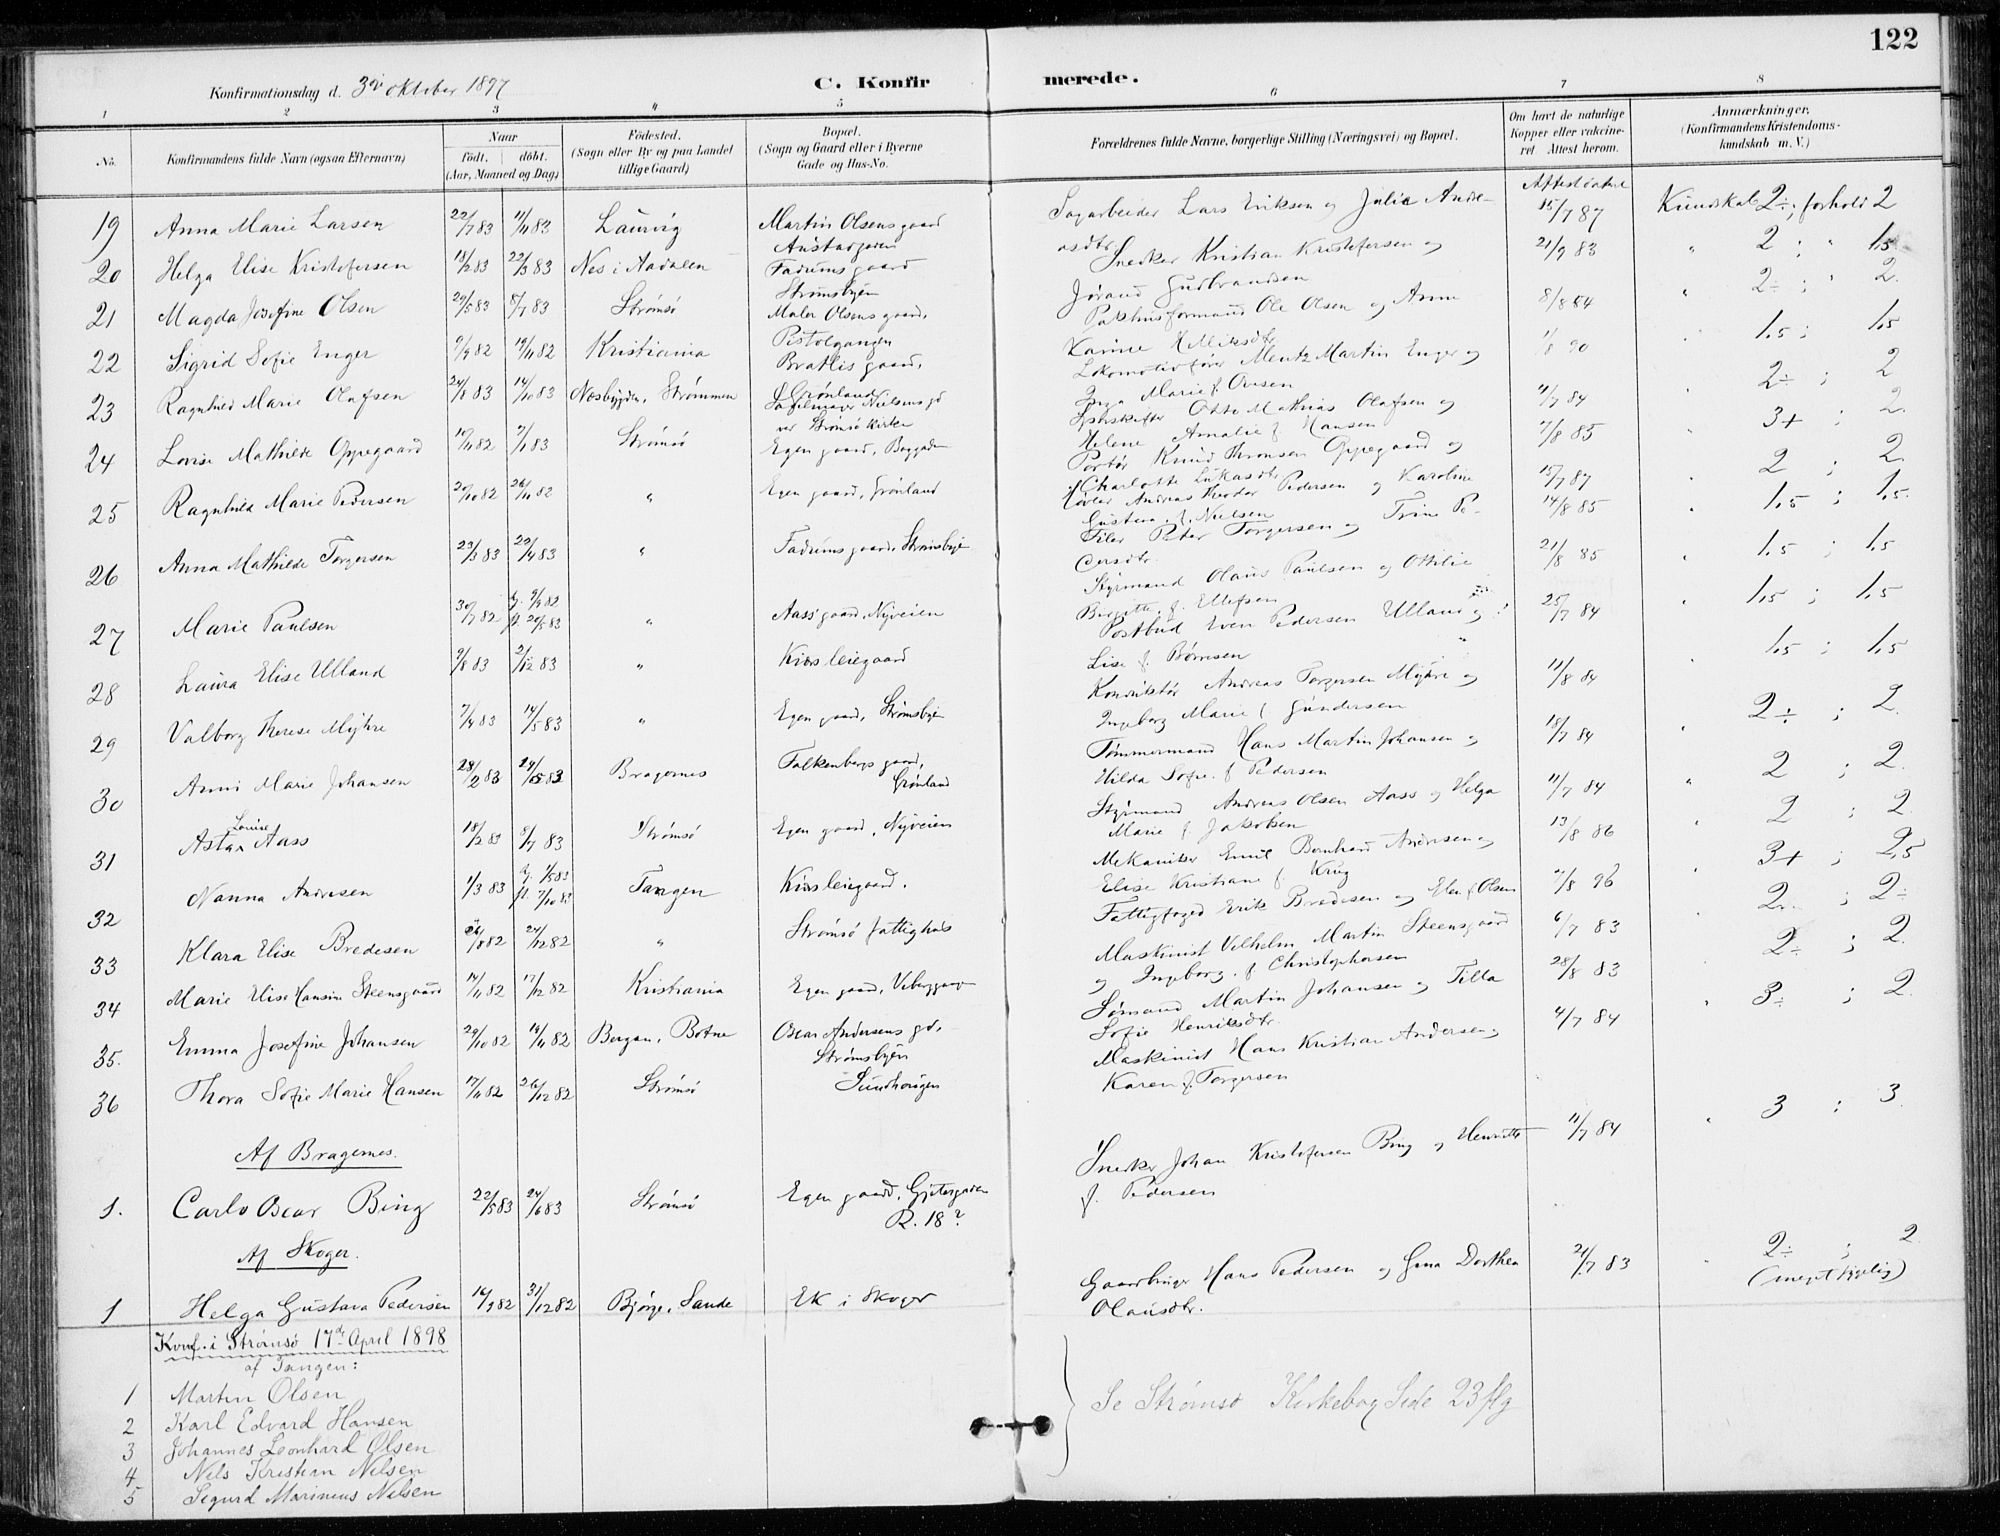 122
Konfirmationsdag d. 3die Oktober 1897
C. Konfirmerede.
1 2 3 4 5 6 7 8
No. Konfirmandens fulde Navn (ogsaa Efternavn) Naar födt. döbt. (Aar, Maaned og Dag) Födested. (Sogn eller By og paa Landet tillige Gaard) Bopæl. (Sogn og Gaard eller i Byerne Gade og Hus-No. Forældrenes fulde Navne, borgerlige Stilling (Næringsvei) og Bopæl. Om havt de naturlige Kopper eller vakcineret Attest herom. Anmærkninger. (Konfirmandens Kristendomskundskab m. V.)
19 Anna Marie Larsen 22/7 83 11/11 83 Laurvig Martin Olsens gaard Sagarbeider Lars Eriksen og Julia Andreasdtr. Attest datert 15/7 87 Kundskab 2÷; forhold 2
20 Helga Elise Kristofersen 18/2 83 22/3 83 Nes i Aadalen Fadums gaard Strømsbyen Snedker Kristian Kristofersen og Jørand Gudbrandsen 21/9 83 " 2 ; " 1,5
21 Magda Josefine Olsen 29/5 83 8/7 83 Strømsø Maler Olsens gaard, Pistolgangen Pakhusformand Ole Olsen og Anne Karine 8/8 84 " 2÷ ; " 2
22 Sigrid Sofie Enger 9/9 82 19/11 82 Kristiania Bratlis gaard, Grønland Lokomotivfører Mentz Martin Enger og Inga Marie f. Ovesen 1/8 90 1,5 ; 1,5
23 Ragnhild Marie Olafsen 24/8 83 14/10 83 Næsbygden, Strømmen Nielsens gd ved Strømsø kirke Otto Mathias Olafsen og Helene Amalie f. Hansen 11/7 84 2÷ ; 2
24 Lovise Mathilde Oppegaard 10/11 82 7/1 83 Strømsø Egen gaard, Baggaden Portør Knud Thronsen Oppegaard og Charlotte Lukasdtr. 7/8 85 3+ ; 2
25 Ragnhild Marie Pedersen 20/10 82 26/11 82 " Egen gaard, Grønland Andreas Theodor Pedersen og Karoline Gustava f. Nielsen 15/7 87 2 ; 2
26 Anna Mathilde Torgersen 23/3 83 22/4 83 " Fadums gaard, Strømsbyen Filer Peter Torgersen og Trine Pedersdtr. 14/8 85 1,5 ; 1,5
27 Marie Paulsen 30/7 82 hj. 9/9 82 fl. 20/5 83 " Aass gaard, Nyveien Styrmand Olaus Paulsen og Ottilie Birgitte f. Ellefsen 21/8 85 1,5 ; 1,5
28 Laura Elise Ulland 9/8 83 2/12 83 " Kiøs leiegaard Postbud Even Pedersen Ulland og Lise f. Børresen 25/7 84 1,5 ; 1,5
29 Valborg Therese Myhre 7/4 83 14/5 83 " Egen gaard, Strømsbyen Konduktør Andreas Torgersen Myhre og Ingeborg Marie f. Gundersen 11/8 84 1,5 ; 1,5
30 Anni Marie Johansen 28/2 83 14/5 83 Bragernes Falkenbergs gaard, Grønland Tømmermand Hans Martin Johansen og Hilda Sofie f. Pedersen 18/7 84 2÷ ; 2
31 Asta Louise Aass 18/2 83 8/7 83 Strømsø Egen gaard, Nyveien Styrmand Andreas Olsen Aass og Helga Marie f. Jakobsen 11/7 84 2 ; 2
32 Nanna Andresen 1/3 83 hj. 1/5 83 fl. 7/10 83 Tangen Kiøs leiegaard. Mekaniker Emil Bernhard Andresen og Elise Kristiane f. Krug 13/8 86 2 ; 2
33 Klara Elise Bredesen 26/8 82 24/12 82 " Strømsø fattighus Fattigfoged Erik Bredesen og Elen f. Olsen 7/8 96 3+ ; 2,5
34 Marie Elise Hansine Steensgaard 14/11 82 17/12 82 Kristiania Egen gaard, Viberggangen Maskinist Vilhelm Martin Steensgaard og Ingeborg f. Christophersen 6/7 83 2÷ ; 2÷
35. Emma Josefine Johansen 29/10 82 19/11 82 Bergan, Botne Oscar Andersens gd. Strømsbyen Sømand Martin Johansen og Tilla Sofie Henriksdtr. 28/8 83 2÷ ; 2
36 Thora Sofie Marie Hansen 17/11 82 26/12 82 Strømsø Sundhaugen Maskinist Hans Kristian Andersen og Karen f. Torgersen 4/7 84 3÷ ; 2
Af Bragernes.
1. Carlo Oscar Bing 22/5 83 24/6 83 Strømsø Egen gaard, Gjetergaden R. 18? Snedker Johan Kristofersen Bing og Henriette f. Pedersen 11/7 84 " 3 ; 3
Af Skoger.
1 Helga Gustava Pedersen 16/9 82 31/12 82 Bjørge, Sande Ek i Skoger Gaardbruger Hans Pedersen og Gina Dorthea Olausdtr. 21/7 83 2÷ ; 2
Konf. i Strømsø 17de April 1898
af Tangen:
1 Martin Olsen
2 Karl Edvard Hansen
3 Johannes Leonhard Olsen
4 Nils Kristian Nilsen
5 Sigurd Marinius Nilsen
Se Strømsø Kirkebog Side 23 flg